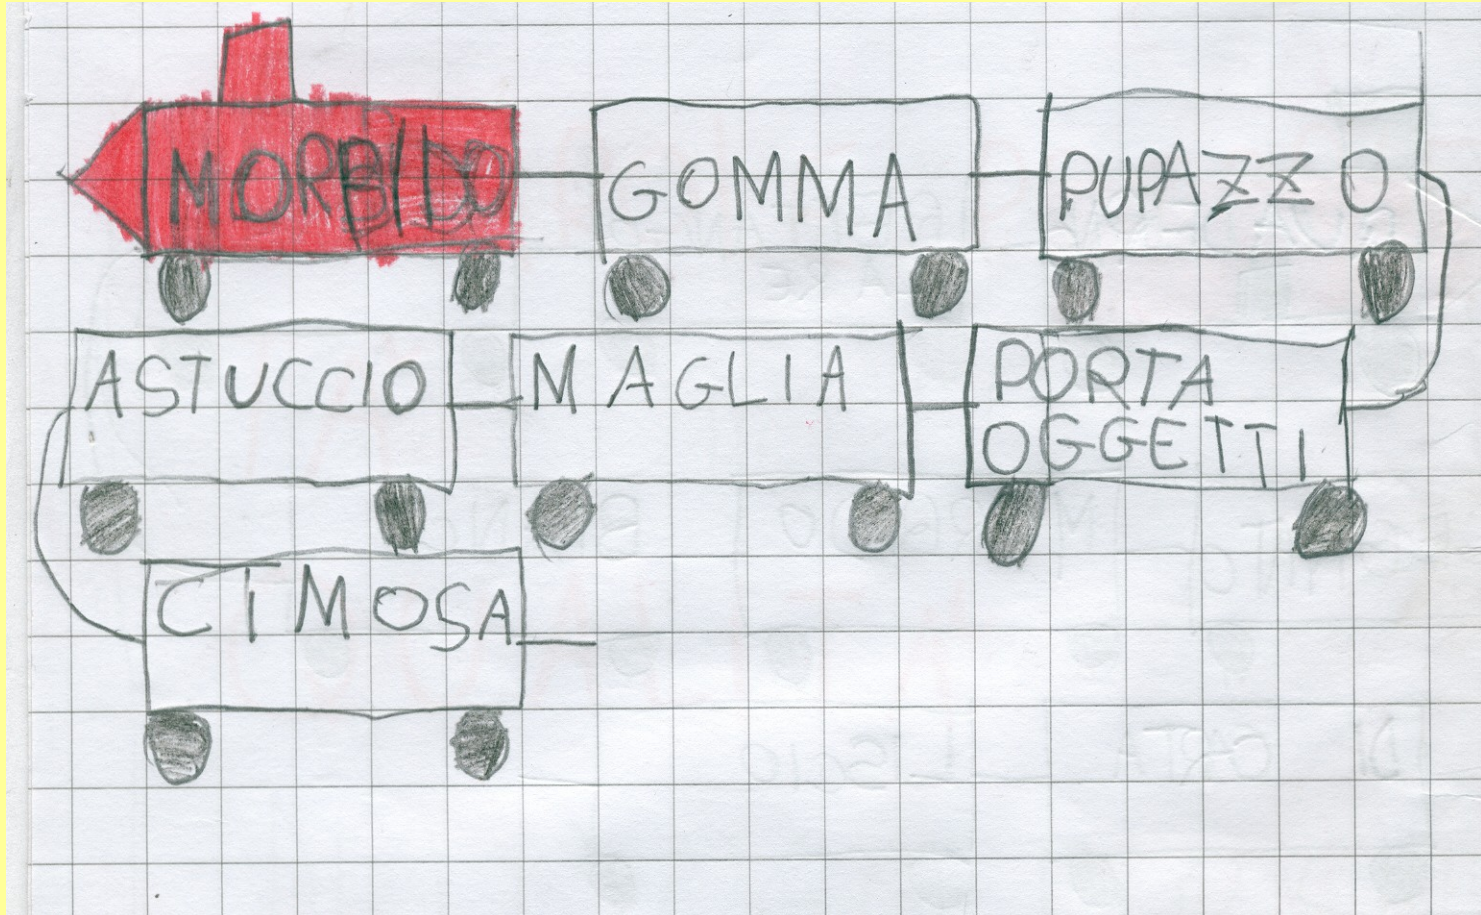 MORBIDO GOMMA PUPAZZO
ASTUCCIO MAGLIA PORTA
OGGETTI
CIMOSA